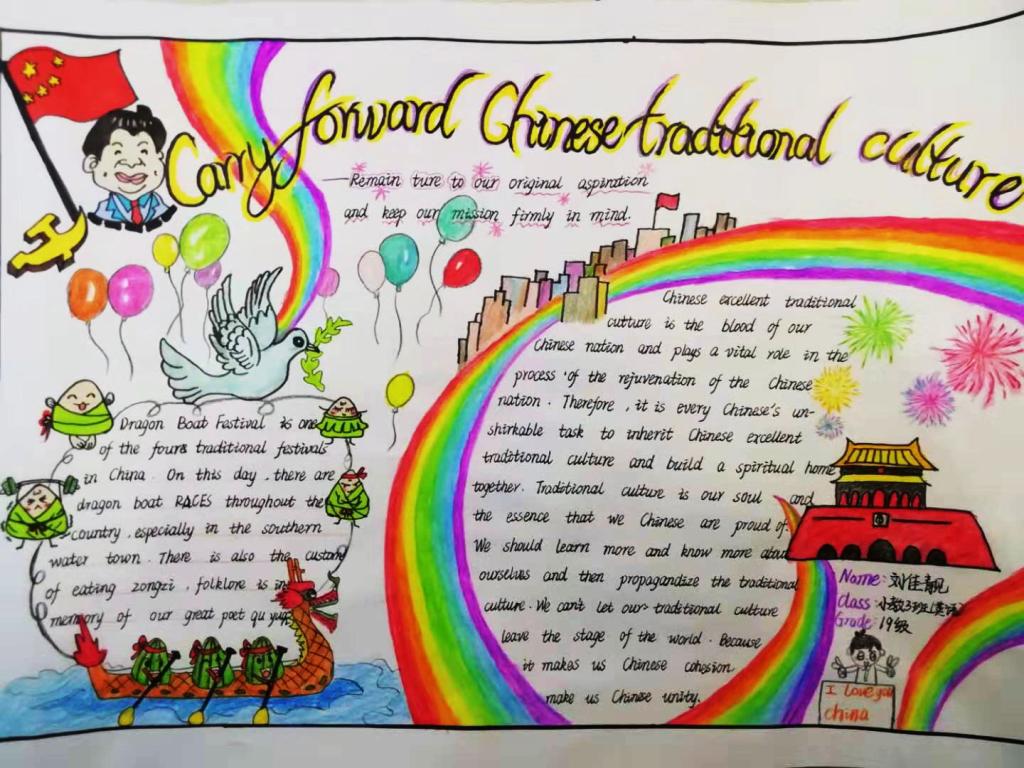 Carry forward Chinese traditional culture
—Remain ture to our original aspiration
and keep our mission firmly in mind.
Dragon Boat Festival is one
of the fours traditional festivals
in China. On this day, there are
dragon boat RACES throughout the
country, especially in the southern
water town. There is also the custom
of eating zongzi, folklore is in
memory of our great poet qu yuan
Chinese excellent traditional
cutture is the blood of our
Chinese nation and plays a vital role in the
process of the rejuvenation of the Chinese
nation. Therefore, it is every Chinese's un-
shirkable task to inherit Chinese excellent
traditional culture and build a spiritual home
together. Traditional culture is our soul and
the essence that we Chinese are proud of.
We should learn more and know more about
ourselves and then propagandize the traditional
culture. We can't let our traditional culture
leave the stage of the world. Because
it makes us Chinese cohesion,
make us Chinese unity.
Name: 刘佳靓
Class: 小教3班(英语)
Grade: 19级
I love you
china